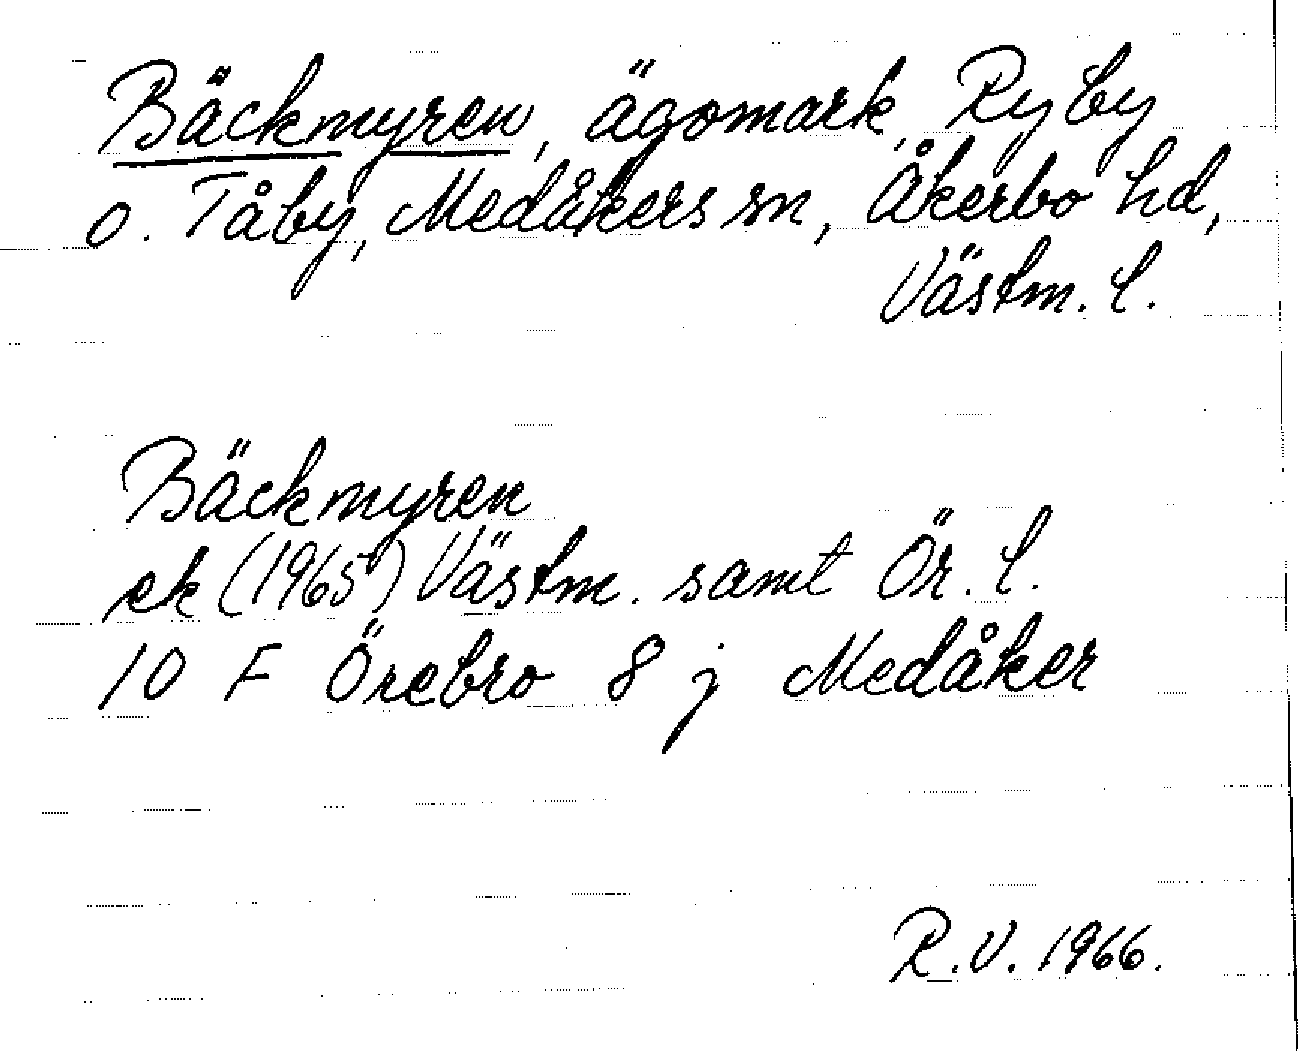 Bäckmyren, ägomark, Ryby
o. Tåby, Medåkers sn, Åkerbo hd,
Västm. l.
Bäckmyren
ek (1965) Västm. samt Ör. l.
10 F Örebro 8 j Medåker
R.V. 1966.